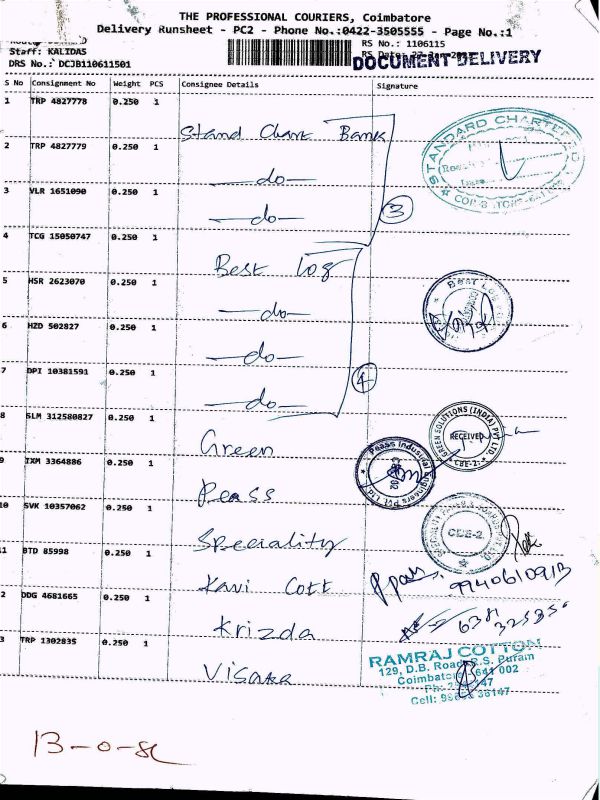 THE PROFESSIONAL COURIERS, Coimbatore
Delivery Runsheet - PC2 - Phone No.:0422-3505555 - Page No.:1
Staff: KALIDAS
RS No.: 1106115
DRS No.: DCJB110611501
DOCUMENT DELIVERY
S No Consignment No Weight PCS Consignee Details Signature
1 TRP 4827778 0.250 1 Stand Chart Bank
2 TRP 4827779 0.250 1 —do—
3 VLR 1651090 0.250 1 —do—
3
4 TCG 15050747 0.250 1 Best Log
5 HSR 2623070 0.250 1 —do—
6 HZD 502827 0.250 1 —do—
7 DPI 10381591 0.250 1 —do—
4
8 SLM 312580827 0.250 1 Green
9 IXM 3364886 0.250 1 Peass
10 SVK 10357062 0.250 1 Speciality
11 BTD 85998 0.250 1 Kavi Cott
2 DDG 4681665 0.250 1 Krizda
3 TRP 1302835 0.250 1 Visaka
STANDARD CHARTERED
Best Log
GREEN SOLUTIONS (INDIA) PVT LTD.
RECEIVED
CBE-2
Peass Industrial Engineers Pvt Ltd
CBE-2.
9940610913
RAMRAJ COTTON
129, D.B. Road, R.S. Puram
Coimbatore 641 002
13-0-sc